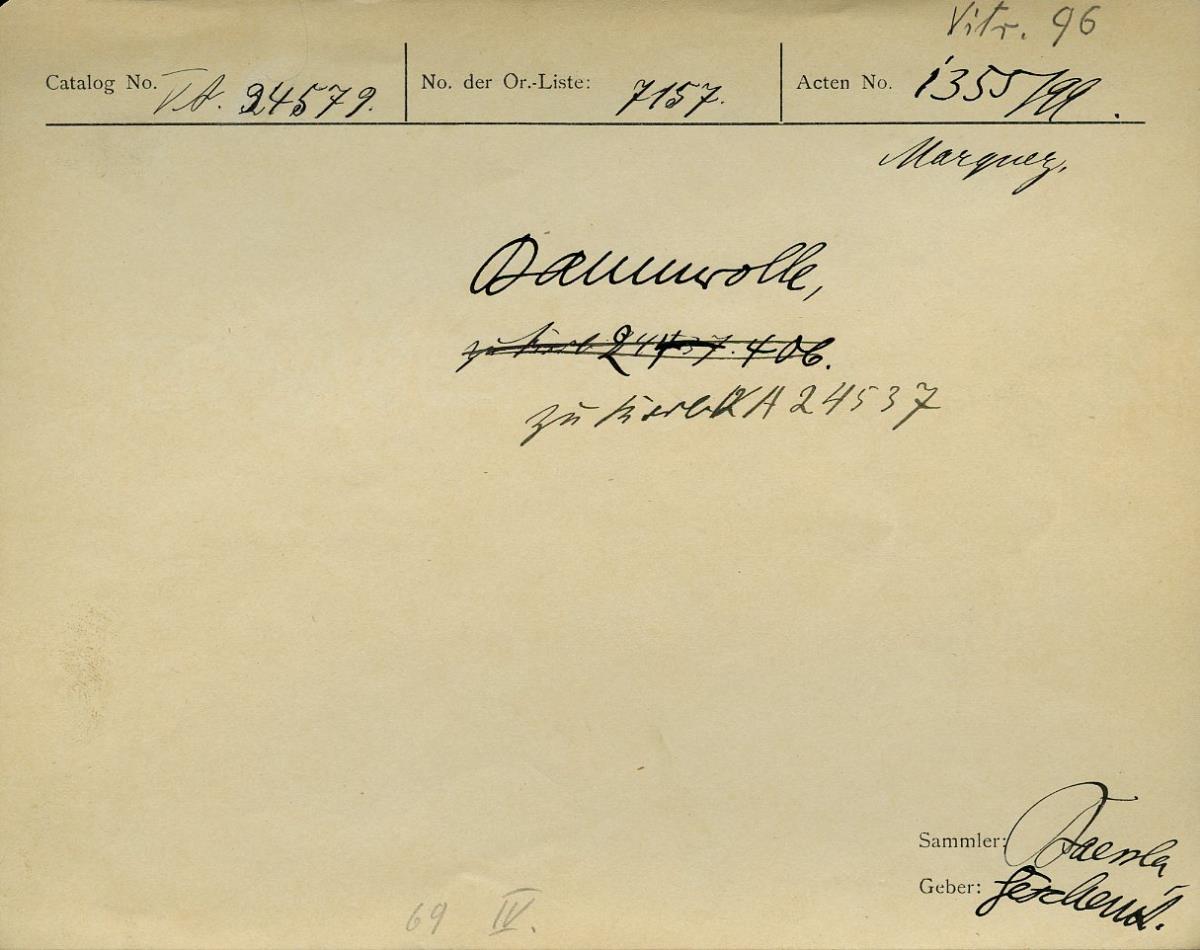 Vitr. 96
Catalog No. VA. 24579. No. der Or.-Liste: 7157. Acten No. 1355/99.
Marquez.
Baumwolle,
zu Korb 406.
zu Korb VA 24537
Sammler: Baessler
Geber: Geschenk.
69 IV.